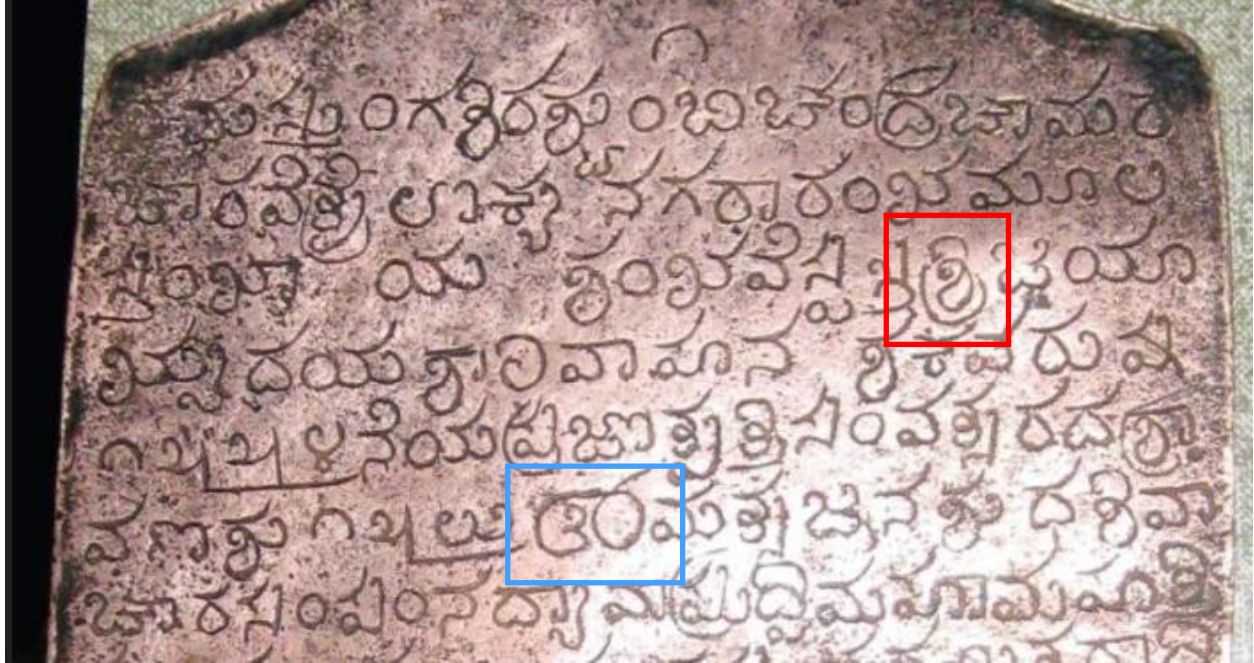 ೧
ಮಸ್ತುಂಗಶಿರಶ್ಚುಂಬಿಚಂದ್ರಚಾಮರ
ಚಾರವೆತ್ರೈಲೋಕ್ಯ ನಗರಾರಂಭಮೂಲ
ಸ್ತಂಭಾಯ ಶಂಭವೆಸ್ವಸ್ತಿಶ್ರಿಜಯಾ
ಭ್ಯುದಯಶಾಲಿವಾಹನ ಶಕವರುಷ
೧೫೫೪ನೆಯಪ್ರಜೋತ್ಪತ್ತಿಸಂವತ್ಸರದಶ್ರಾ
ವಣಶು ೧೫ಲು ಶ್ರೀಮತ್ಸಜ್ಜನಶುದಶಿವಾ
ಚಾರಸಂಪಂನದ್ಯಾವಾಪ್ರುದ್ವಿಮಹಾಮಹತ್ತಿ